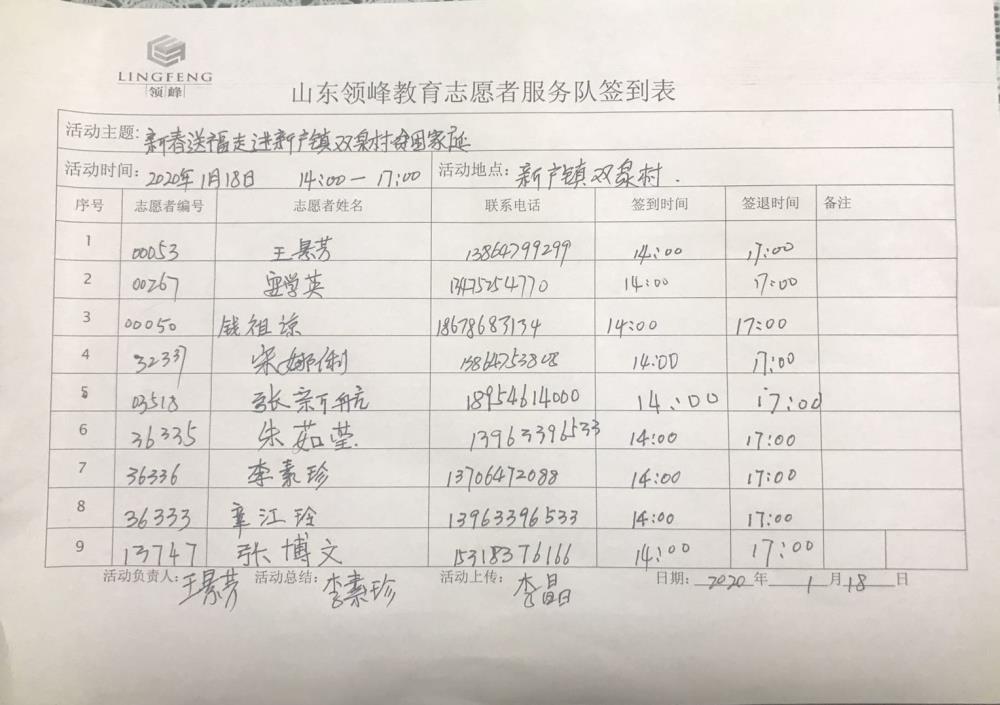 LINGFENG
领峰
山东领峰教育志愿者服务队签到表
活动主题: 新春送福走进新庄镇双泉村贫困家庭
活动时间: 2020年1月18日 14:00—17:00 活动地点: 新庄镇双泉村.
序号 志愿者编号 志愿者姓名 联系电话 签到时间 签退时间 备注
1 00053 王景芳 13864799299 14:00 17:00
2 00267 学英 13475254770 14:00 17:00
3 00050 钱祖谅 18678683134 14:00 17:00
4 32337 宋娜利 14:00 17:00
5 03518 张新航 18954614000 14:00 17:00
6 36335 朱茹莹. 13963396533 14:00 17:00
7 36336 李素珍 13706472088 14:00 17:00
8 36333 章江玲 13963396533 14:00 17:00
9 13747 张博文 15318376166 14:00 17:00
活动负责人: 王景芳 活动总结: 李素珍 活动上传: 李晶 日期: 2020 年 1 月 18 日